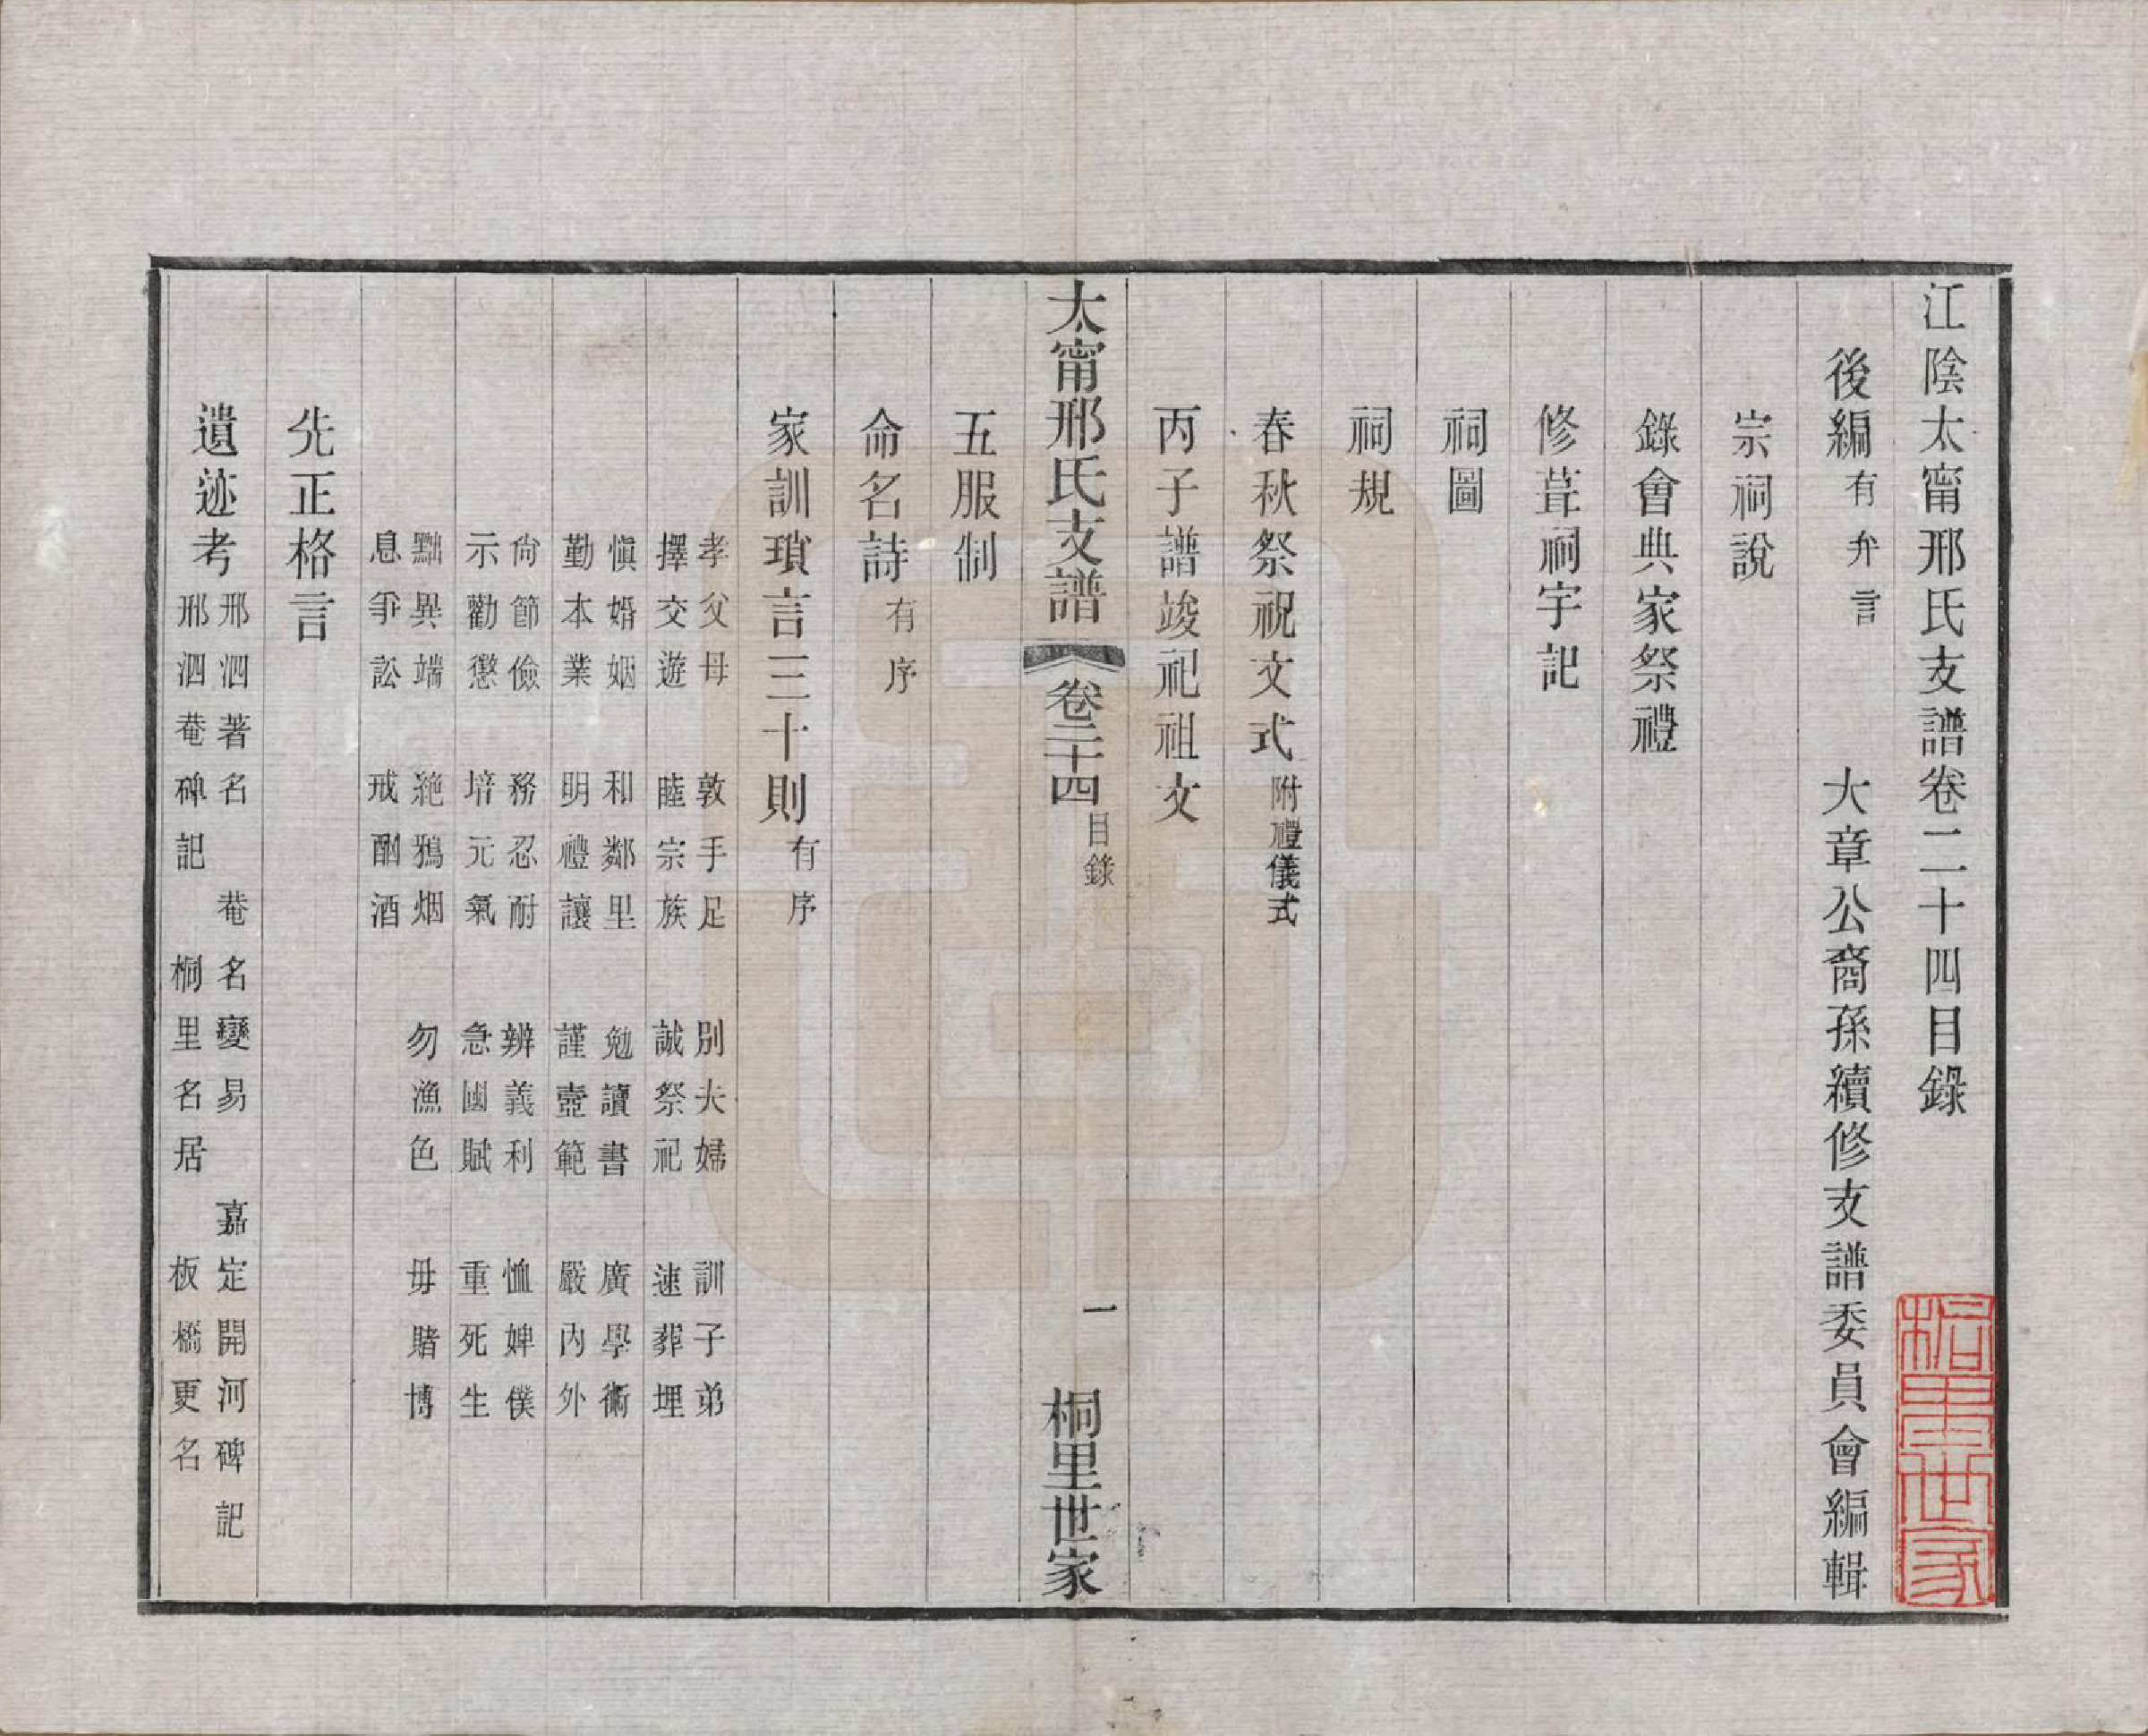 江陰太甯邢氏支譜卷二十四目錄
後編有弁言 大章公裔孫續修支譜委員會編輯
宗祠說
錄會典家祭禮
修葺祠宇記
祠圖
祠規
春秋祭祝文式附禮儀式
丙子譜竣祀祖文
太甯邢氏支譜 卷二十四 目錄 一 桐里世家
五服制
命名詩有序
家訓瑣言三十則有序
孝父母 敦手足 別夫婦 訓子弟
擇交遊 睦宗族 誠祭祀 速葬埋
愼婚姻 和鄰里 勉讀書 廣學術
勤本業 明禮讓 謹壼範 嚴內外
尙節儉 務忍耐 辨義利 恤婢僕
示勸懲 培元氣 急國賦 重死生
黜異端 絶鴉烟 勿漁色 毋賭博
息爭訟 戒酗酒
先正格言
遺迹考
邢泗著名 菴名變易 嘉定開河碑記
邢泗菴碑記 桐里名居 板橋更名
桐里世家